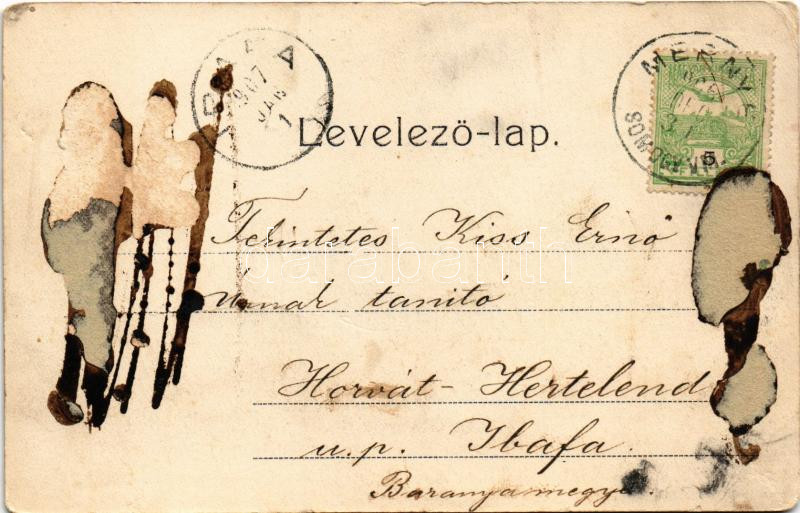 907
JAN
1
MERNYE
5
Levelező-lap.
Tekintetes Kiss Ernő
Úrnak tanító
Horvát-Hertelend
u.p. Ibafa.
Baranyamegye.
darabanth